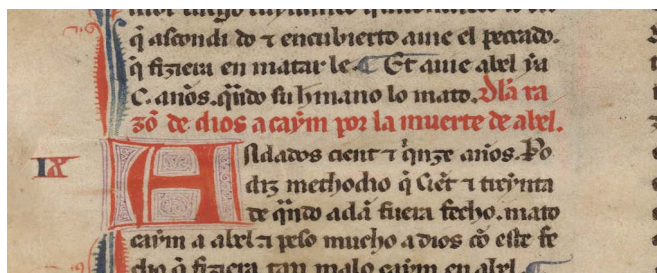 q̃ ascondi do ⁊ encubierto auie el peccado.
q̃ fiziera en matar le ¶ Et auie abel ya
C. anõs. q̃ndo su hmano lo mato. Dla ra
zõ de dios a caym por la muerte de abel.
IX
Asidados cient ⁊ q̃nze anõs. Po
diz methodio q̃ Ciet ⁊ treynta
de q̃ndo adã fuera fecho. mato
caym a abel ⁊ peso mucho a dios cõ este fe
cho q̃ fiziera tan malo caym en abel